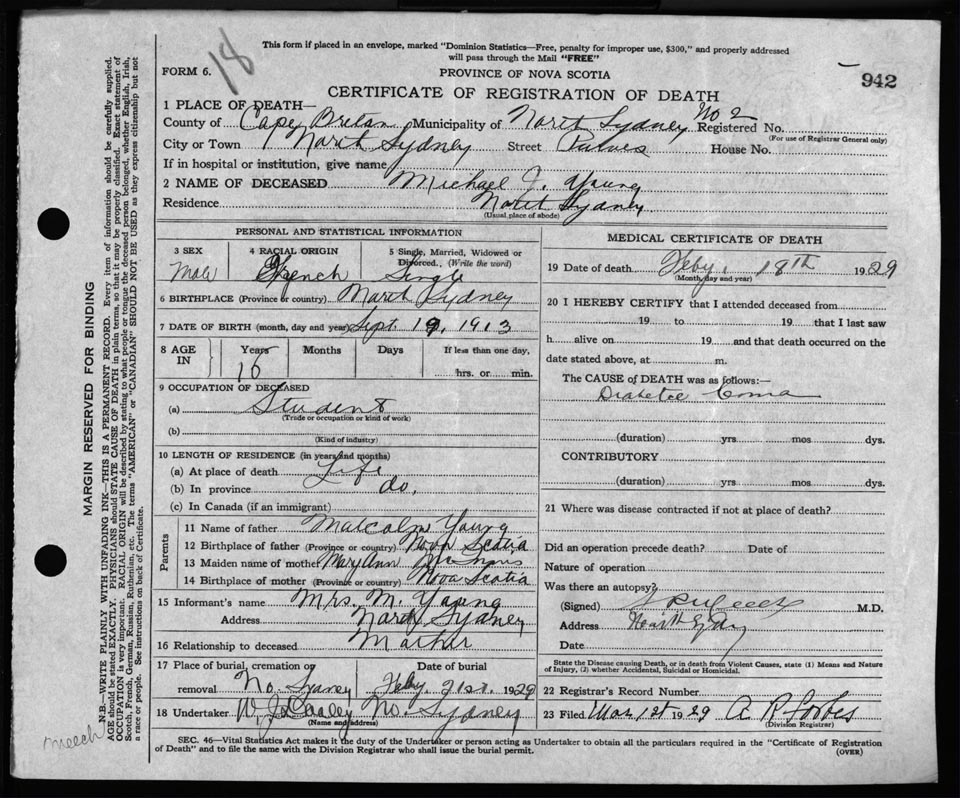 18
This form if placed in an envelope, marked "Dominion Statistics—Free, penalty for improper use, $300," and properly addressed
will pass through the Mail "FREE"
FORM 6.
PROVINCE OF NOVA SCOTIA
942
CERTIFICATE OF REGISTRATION OF DEATH
1 PLACE OF DEATH—
County of Cape Breton Municipality of North Sydney No 2 Registered No.
(For use of Registrar General only)
City or Town North Sydney Street House No.
If in hospital or institution, give name
2 NAME OF DECEASED Michael J. Young
Residence North Sydney
(Usual place of abode)
PERSONAL AND STATISTICAL INFORMATION
3 SEX
Male
4 RACIAL ORIGIN
French
5 Single, Married, Widowed or
Divorced, (Write the word)
Single
6 BIRTHPLACE (Province or country) North Sydney
7 DATE OF BIRTH (month, day and year) Sept 19, 1913
8 AGE IN
Years Months Days If less than one day,
16 hrs. or min.
9 OCCUPATION OF DECEASED
(a) Student
(Trade or occupation or kind of work)
(b)
(Kind of industry)
10 LENGTH OF RESIDENCE (in years and months)
(a) At place of death Life
(b) In province do.
(c) In Canada (if an immigrant)
Parents
11 Name of father Malcolm Young
12 Birthplace of father (Province or country) Nova Scotia
13 Maiden name of mother Mary Ann
14 Birthplace of mother (Province or country) Nova Scotia
15 Informant's name Mrs. M. Young
Address North Sydney
16 Relationship to deceased Mother
17 Place of burial, cremation or
removal No. Sydney
Date of burial
Feby. 21st. 1929
18 Undertaker No. Sydney
(Name and address)
MEDICAL CERTIFICATE OF DEATH
19 Date of death Feby. 18th 1929
(Month, day and year)
20 I HEREBY CERTIFY that I attended deceased from
19 to 19 that I last saw
h alive on 19 and that death occurred on the
date stated above, at m.
The CAUSE of DEATH was as follows:—
Diabetec Coma
(duration) yrs. mos. dys.
CONTRIBUTORY
(duration) yrs. mos. dys.
21 Where was disease contracted if not at place of death?
Did an operation precede death? Date of
Nature of operation
Was there an autopsy?
(Signed) M.D.
Address North Sydney
Date
State the Disease causing Death, or in death from Violent Causes, state (1) Means and Nature
of Injury, (2) whether Accidental, Suicidal or Homicidal.
22 Registrar's Record Number
23 Filed Mar 1st 1929 A R Forbes
(Division Registrar)
SEC. 46—Vital Statistics Act makes it the duty of the Undertaker or person acting as Undertaker to obtain all the particulars required in the "Certificate of Registration
of Death" and to file the same with the Division Registrar who shall issue the burial permit.
(OVER)
MARGIN RESERVED FOR BINDING
N.B.—WRITE PLAINLY WITH UNFADING INK—THIS IS A PERMANENT RECORD. Every item of information should be carefully supplied.
AGE should be stated EXACTLY. PHYSICIANS should STATE CAUSE OF DEATH in plain terms, so that it may be properly classified. Exact statement of
OCCUPATION is very important. RACIAL ORIGIN will be described by stating to what people or tongue the deceased person belonged, whether English, Irish,
Scotch, French, German, Russian, Ruthenian, etc. The terms "AMERICAN" or "CANADIAN" SHOULD NOT BE USED as they express citizenship but not
a race or people. See instructions on back of Certificate.